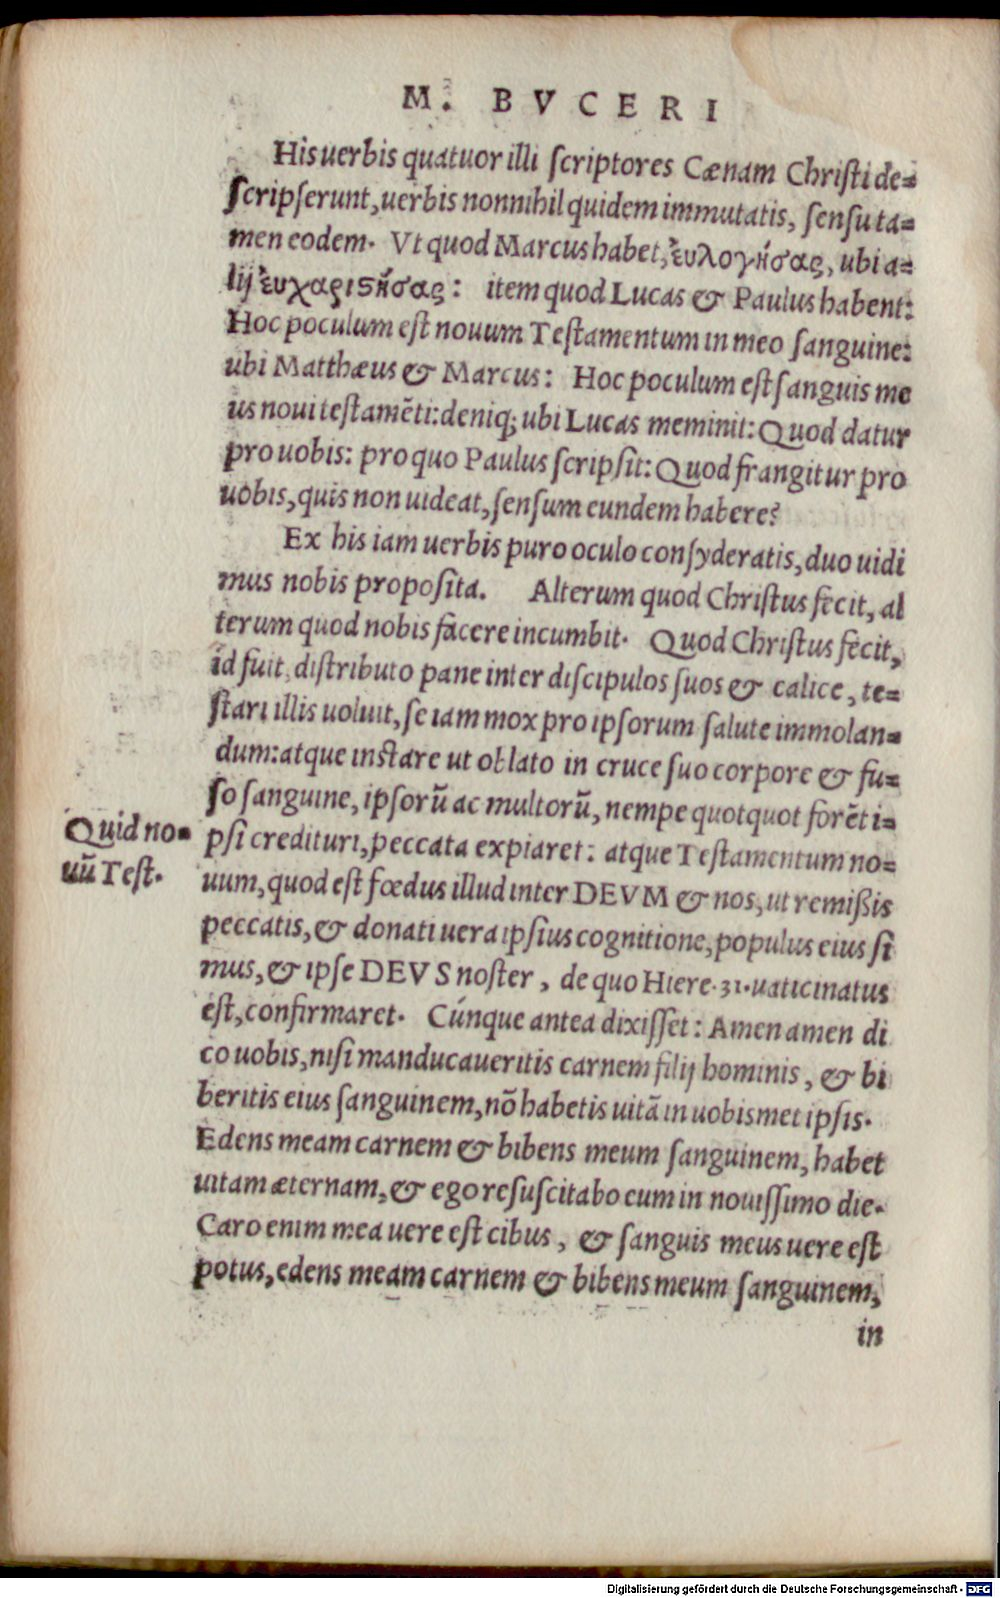 M. BVCERI
His uerbis quatuor illi ſcriptores Cænam Chriſti de=
ſcripſerunt, uerbis nonnihil quidem immutatis, ſenſu ta=
men eodem. Vt quod Marcus habet, ἐυλογήσας, ubi a=
lij ἐυχαριϛήσας: item quod Lucas & Paulus habent:
Hoc poculum eſt nouum Teſtamentum in meo ſanguine:
ubi Matthæus & Marcus: Hoc poculum eſt ſanguis me
us noui teſtamēti: deniq; ubi Lucas meminit: Quod datur
pro uobis: pro quo Paulus ſcripſit: Quod frangitur pro
uobis, quis non uideat, ſenſum eundem habere?
Ex his iam uerbis puro oculo conſyderatis, duo uidi
mus nobis propoſita. Alterum quod Chriſtus fecit, al
terum quod nobis facere incumbit. Quod Chriſtus fecit,
id fuit, diſtributo pane inter diſcipulos ſuos & calice, te=
ſtari illis uoluit, ſe iam mox pro ipſorum ſalute immolan=
dum: atque inſtare ut oblato in cruce ſuo corpore & fu=
ſo ſanguine, ipſorū ac multorū, nempe quotquot forēt i=
pſi credituri, peccata expiaret: atque Teſtamentum no=
uum, quod eſt fœdus illud inter DEVM & nos, ut remißis
peccatis, & donati uera ipſius cognitione, populus eius ſi
mus, & ipſe DEVS noſter, de quo Hiere. 31. uaticinatus
eſt, confirmaret. Cúnque antea dixiſſet: Amen amen di
co uobis, niſi manducaueritis carnem filij hominis, & bi
beritis eius ſanguinem, nō habetis uitā in uobismet ipſis.
Edens meam carnem & bibens meum ſanguinem, habet
uitam æternam, & ego reſuſcitabo eum in nouiſſimo die.
Caro enim mea uere eſt cibus, & ſanguis meus uere eſt
potus, edens meam carnem & bibens meum ſanguinem,
in
Quid no=
uū Teſt.
Digitalisierung gefördert durch die Deutsche Forschungsgemeinschaft - DFG